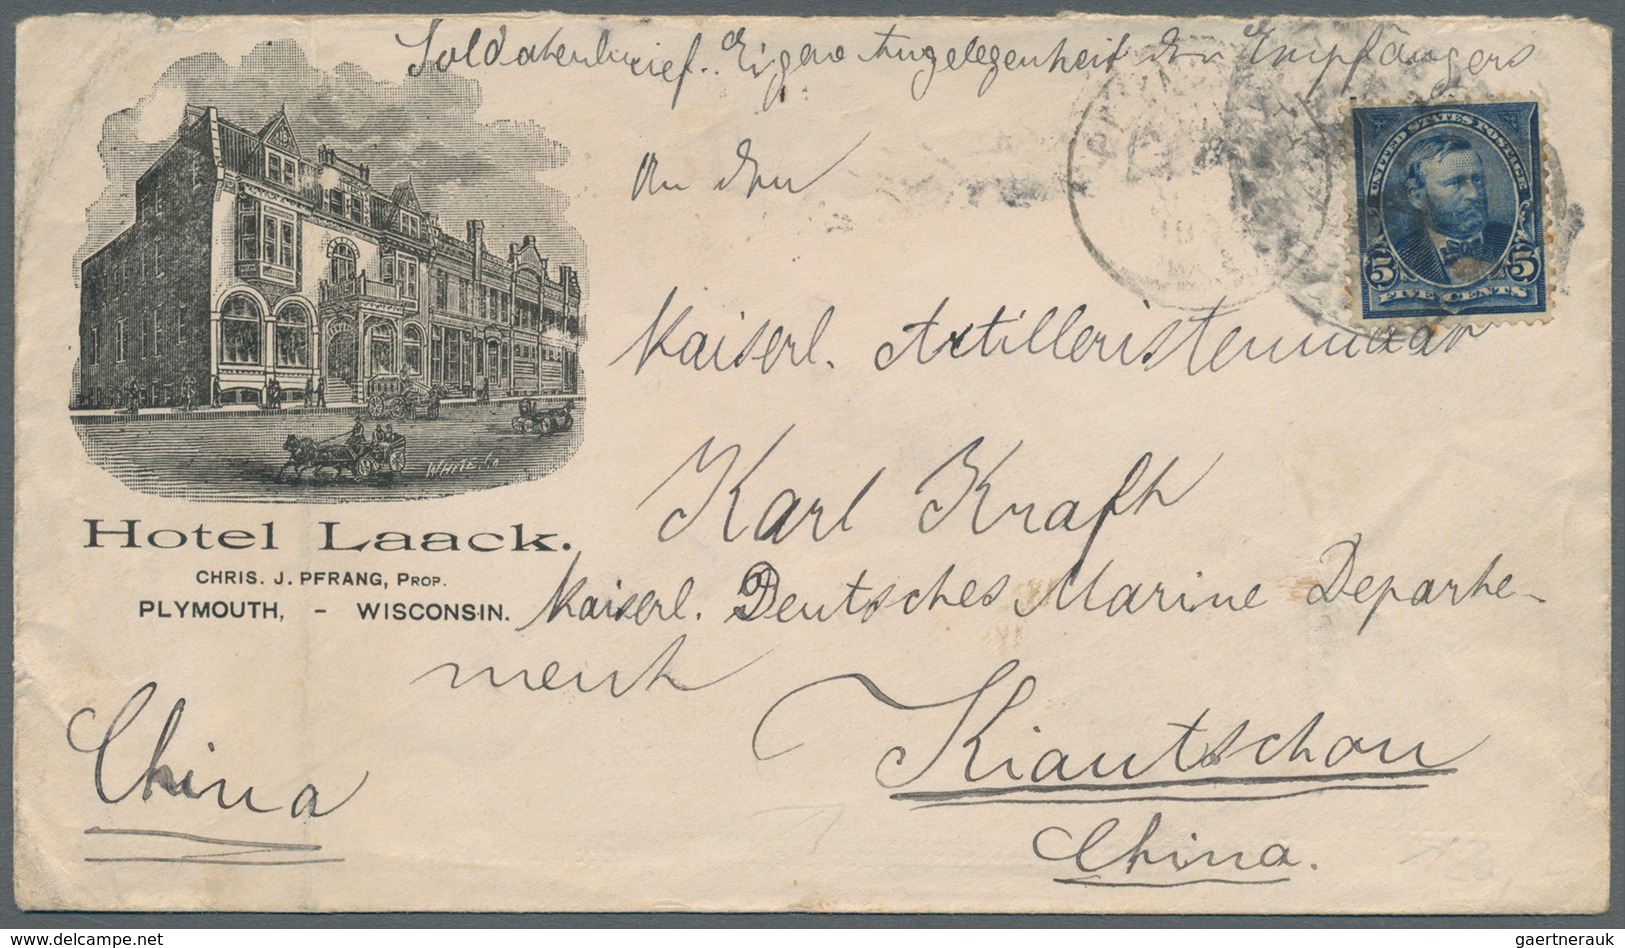 Soldatenbrief. Eigene Angelegenheit des Empfängers
An den
UNITED STATES POSTAGE
5 5
FIVE CENTS
Kaiserl. Artilleristenmaar
Karl Kraft
WHITE Co
Hotel Laack.
CHRIS. J. PFRANG, PROP.
PLYMOUTH, - WISCONSIN.
Kaiserl. Deutsches Marine Departe-
ment
Kiautschou
China
China.
delcampe.net
gaertnerauk